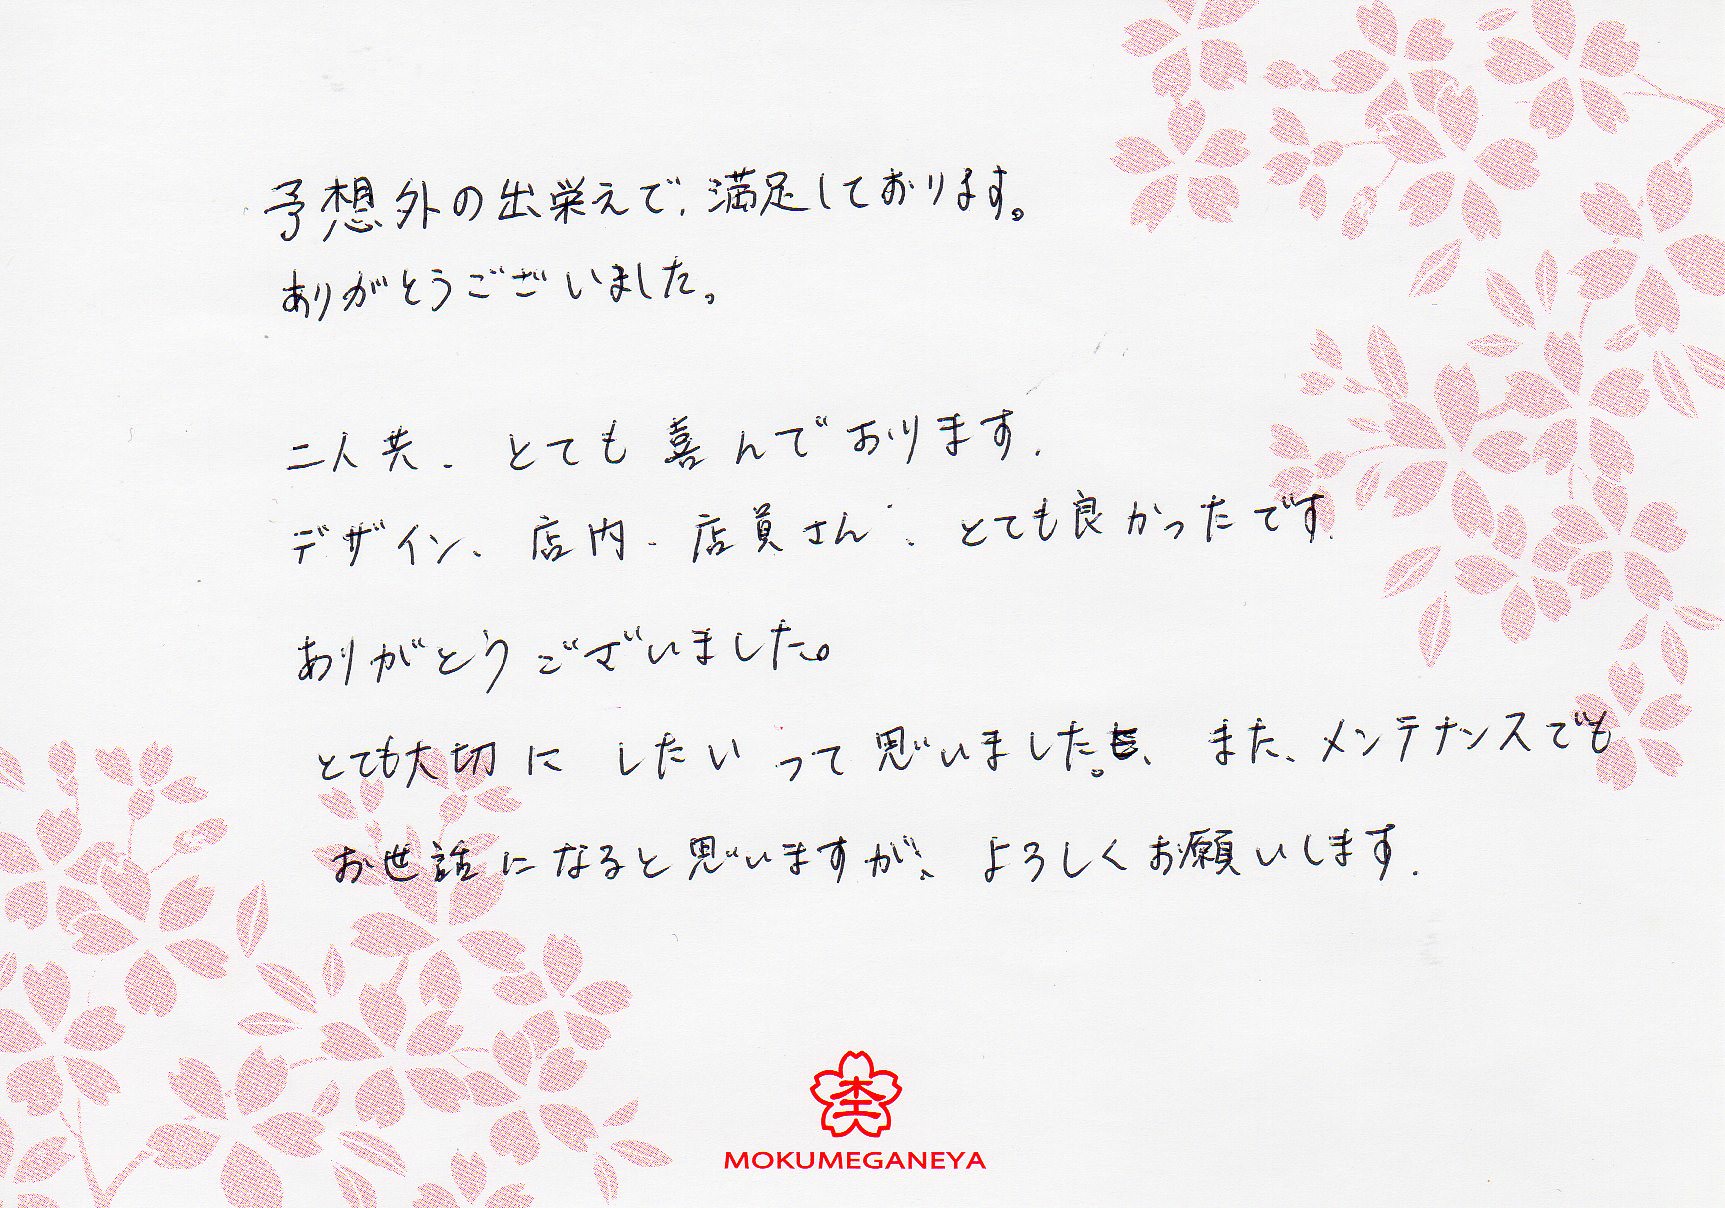 予想外の出栄えで、満足しております。
ありがとうございました。
二人共、とても喜んでおります.
デザイン、店内、店員さん、とても良かったです.
ありがとうございました。
とても大切に したいって思いました。また、メンテナンスでも
お世話になると思いますが、よろしくお願いします.
杢
MOKUMEGANEYA